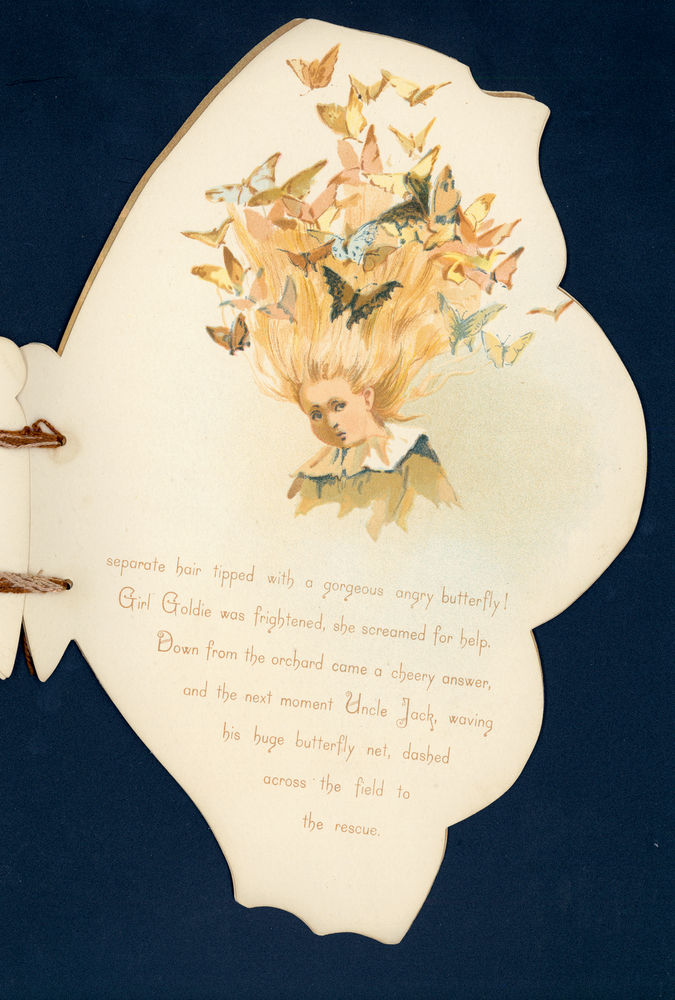 separate hair tipped with a gorgeous angry butterfly!
Girl Goldie was frightened, she screamed for help.
Down from the orchard came a cheery answer,
and the next moment Uncle Jack, waving
his huge butterfly net, dashed
across the field to
the rescue.